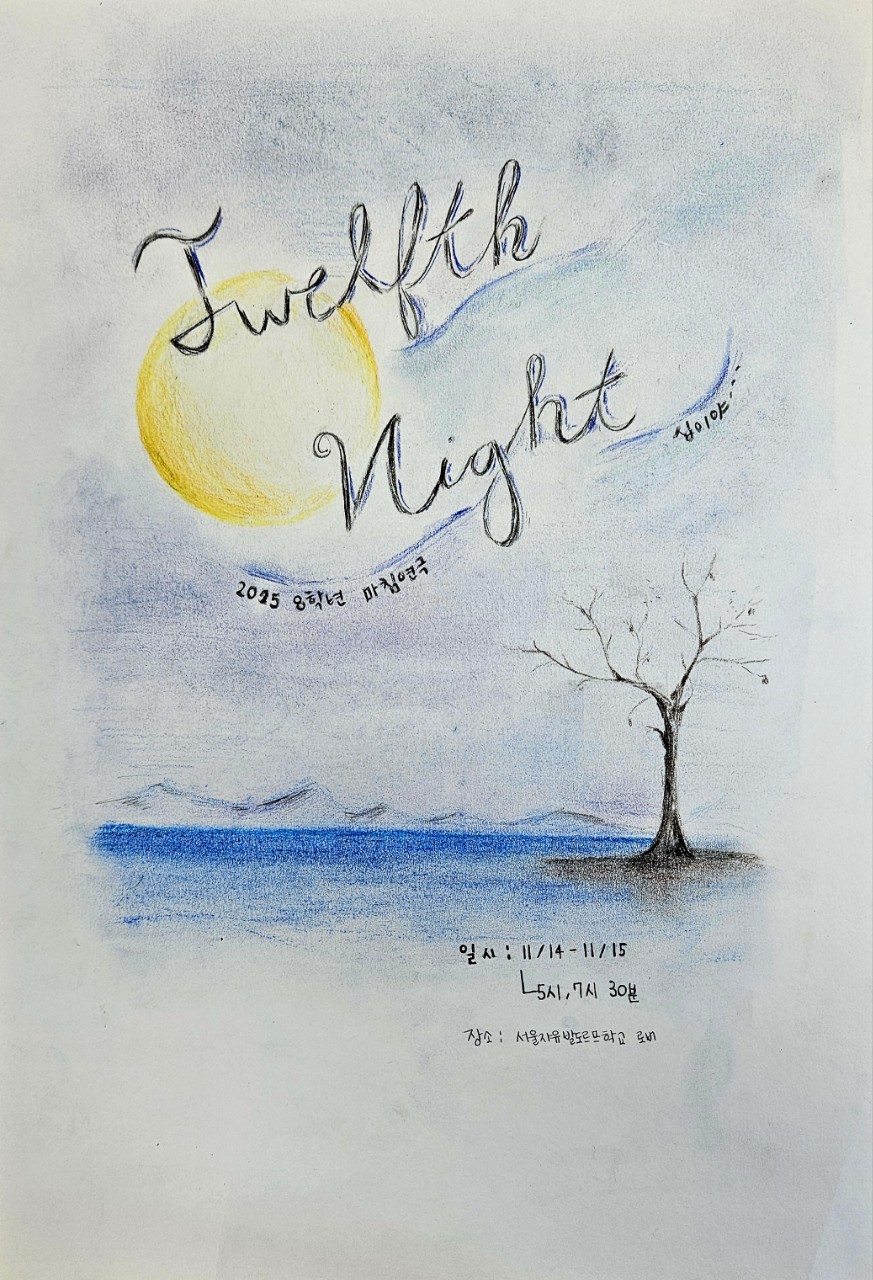 Twelfth
Night
십이야
2025 8학년 마침연극
일시 : 11/14 - 11/15
5시, 7시 30분
장소 : 서울자유발도르프학교 로비